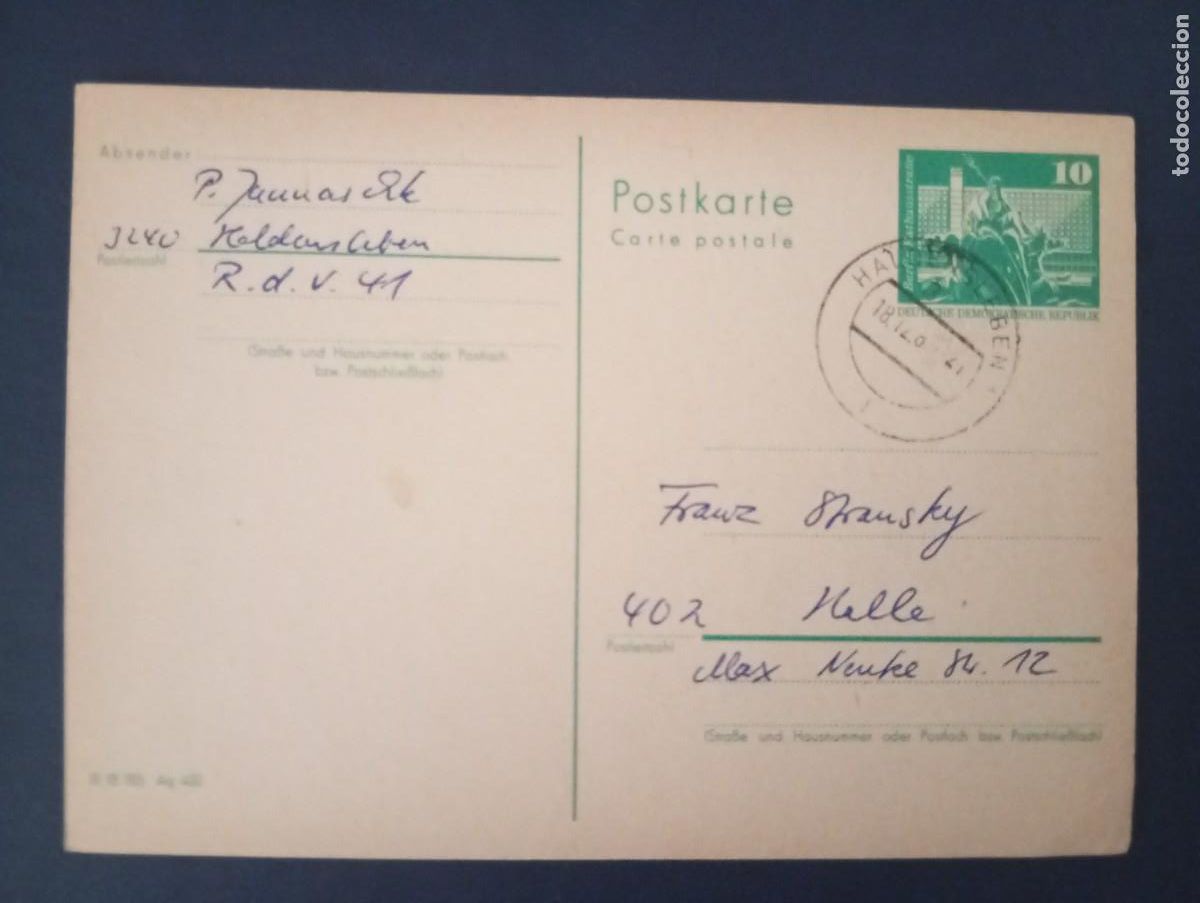 Absender
P. Jannaschk
3240 Haldensleben
Postleitzahl
R. d. V. 41
(Straße und Hausnummer oder Postfach
bzw. Postschließfach)
Postkarte
Carte postale
10
DEUTSCHE DEMOKRATISCHE REPUBLIK
18.12.
Franz Stransky
402 Halle
Postleitzahl
Max Str. 12
(Straße und Hausnummer oder Postfach bzw. Postschließfach)
todocoleccion